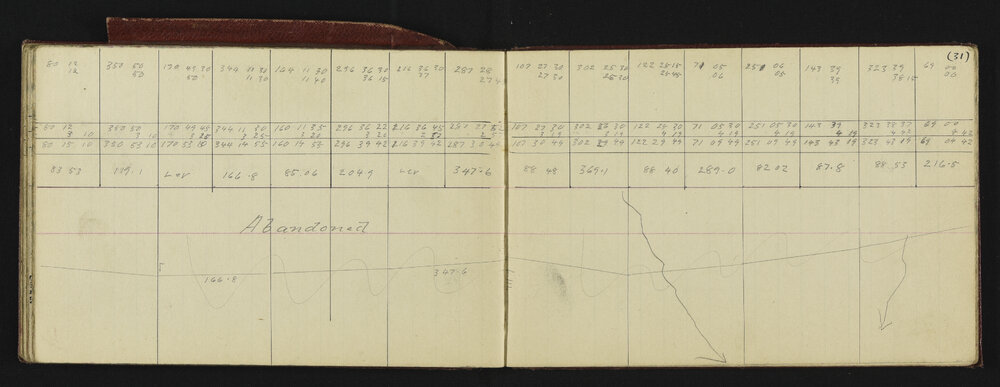 (31)
80 12 350 50 170 49 30 344 11 30 164 11 30 296 36 30 216 36 30 287 28 107 27 30 302 25 30 122 25 15 71 05 251 06 143 39 323 39 69 00
12 50 50 11 30 11 40 36 15 37 27 27 30 25 30 25 45 06 05 39 38 15 06
80 12 350 50 170 49 45 344 11 30 160 11 35 296 36 22 216 36 45 107 27 30 302 25 30 122 25 30 71 05 30 251 05 30 143 39 323 38 37 69 00
3 10 3 10 3 25 3 25 3 20 3 19 4 19 4 19 4 19 4 19 4 42 4 42
80 15 10 350 53 10 170 53 10 344 14 55 160 14 53 296 39 42 216 39 42 287 30 42 107 30 49 302 29 49 122 29 49 71 09 49 251 09 49 143 43 19 323 43 19 69 04 42
83 53 179.1 Lev 166.8 85.06 204.9 Lev 347.6 88 48 369.1 88 40 289.0 82 02 87.8 88.53 216.5
Abandoned
166.8 347.6